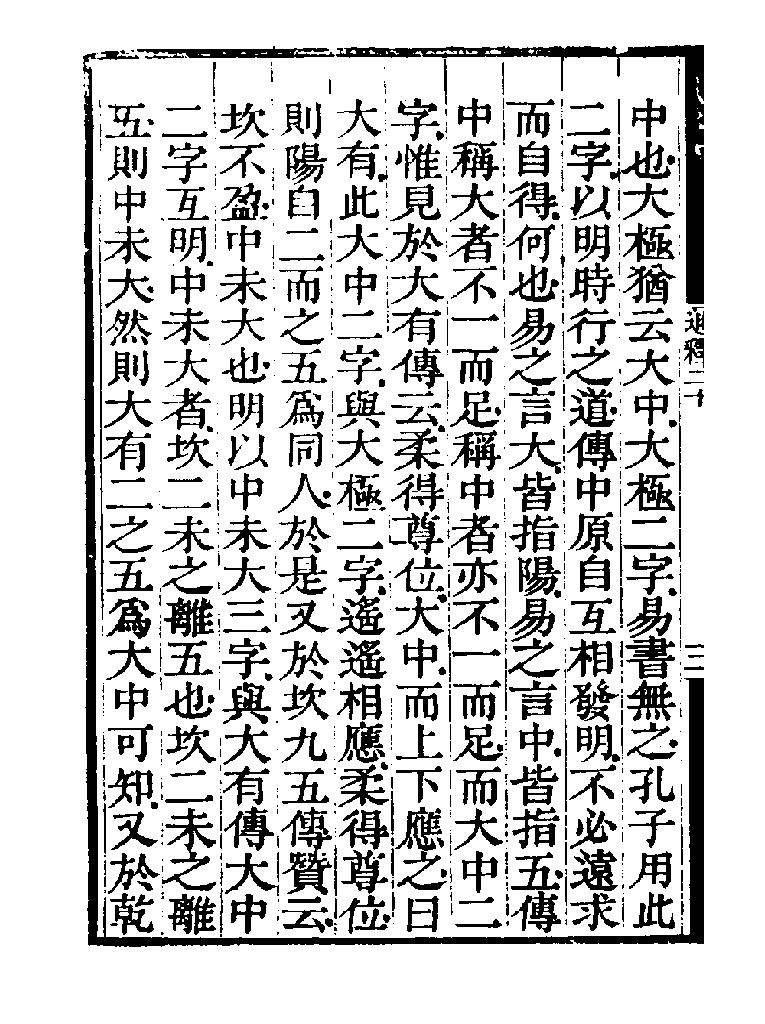 中也大極猶云大中大極二字易書無之孔子用此
二字以明時行之道傳中原自互相發明不必遠求
而自得何也易之言大皆指陽易之言中皆指五傳
中稱大者不一而足稱中者亦不一而足而大中二
字惟見於大有傳云柔得尊位大中而上下應之曰
大有此大中二字與大極二字遙遙相應柔得尊位
則陽自二而之五爲同人於是又於坎九五傳贊云
坎不盈中未大也明以中未大三字與大有傳大中
二字互明中未大者坎二未之離五也坎二未之離
五則中未大然則大有二之五爲大中可知又於乾
通釋二十
三